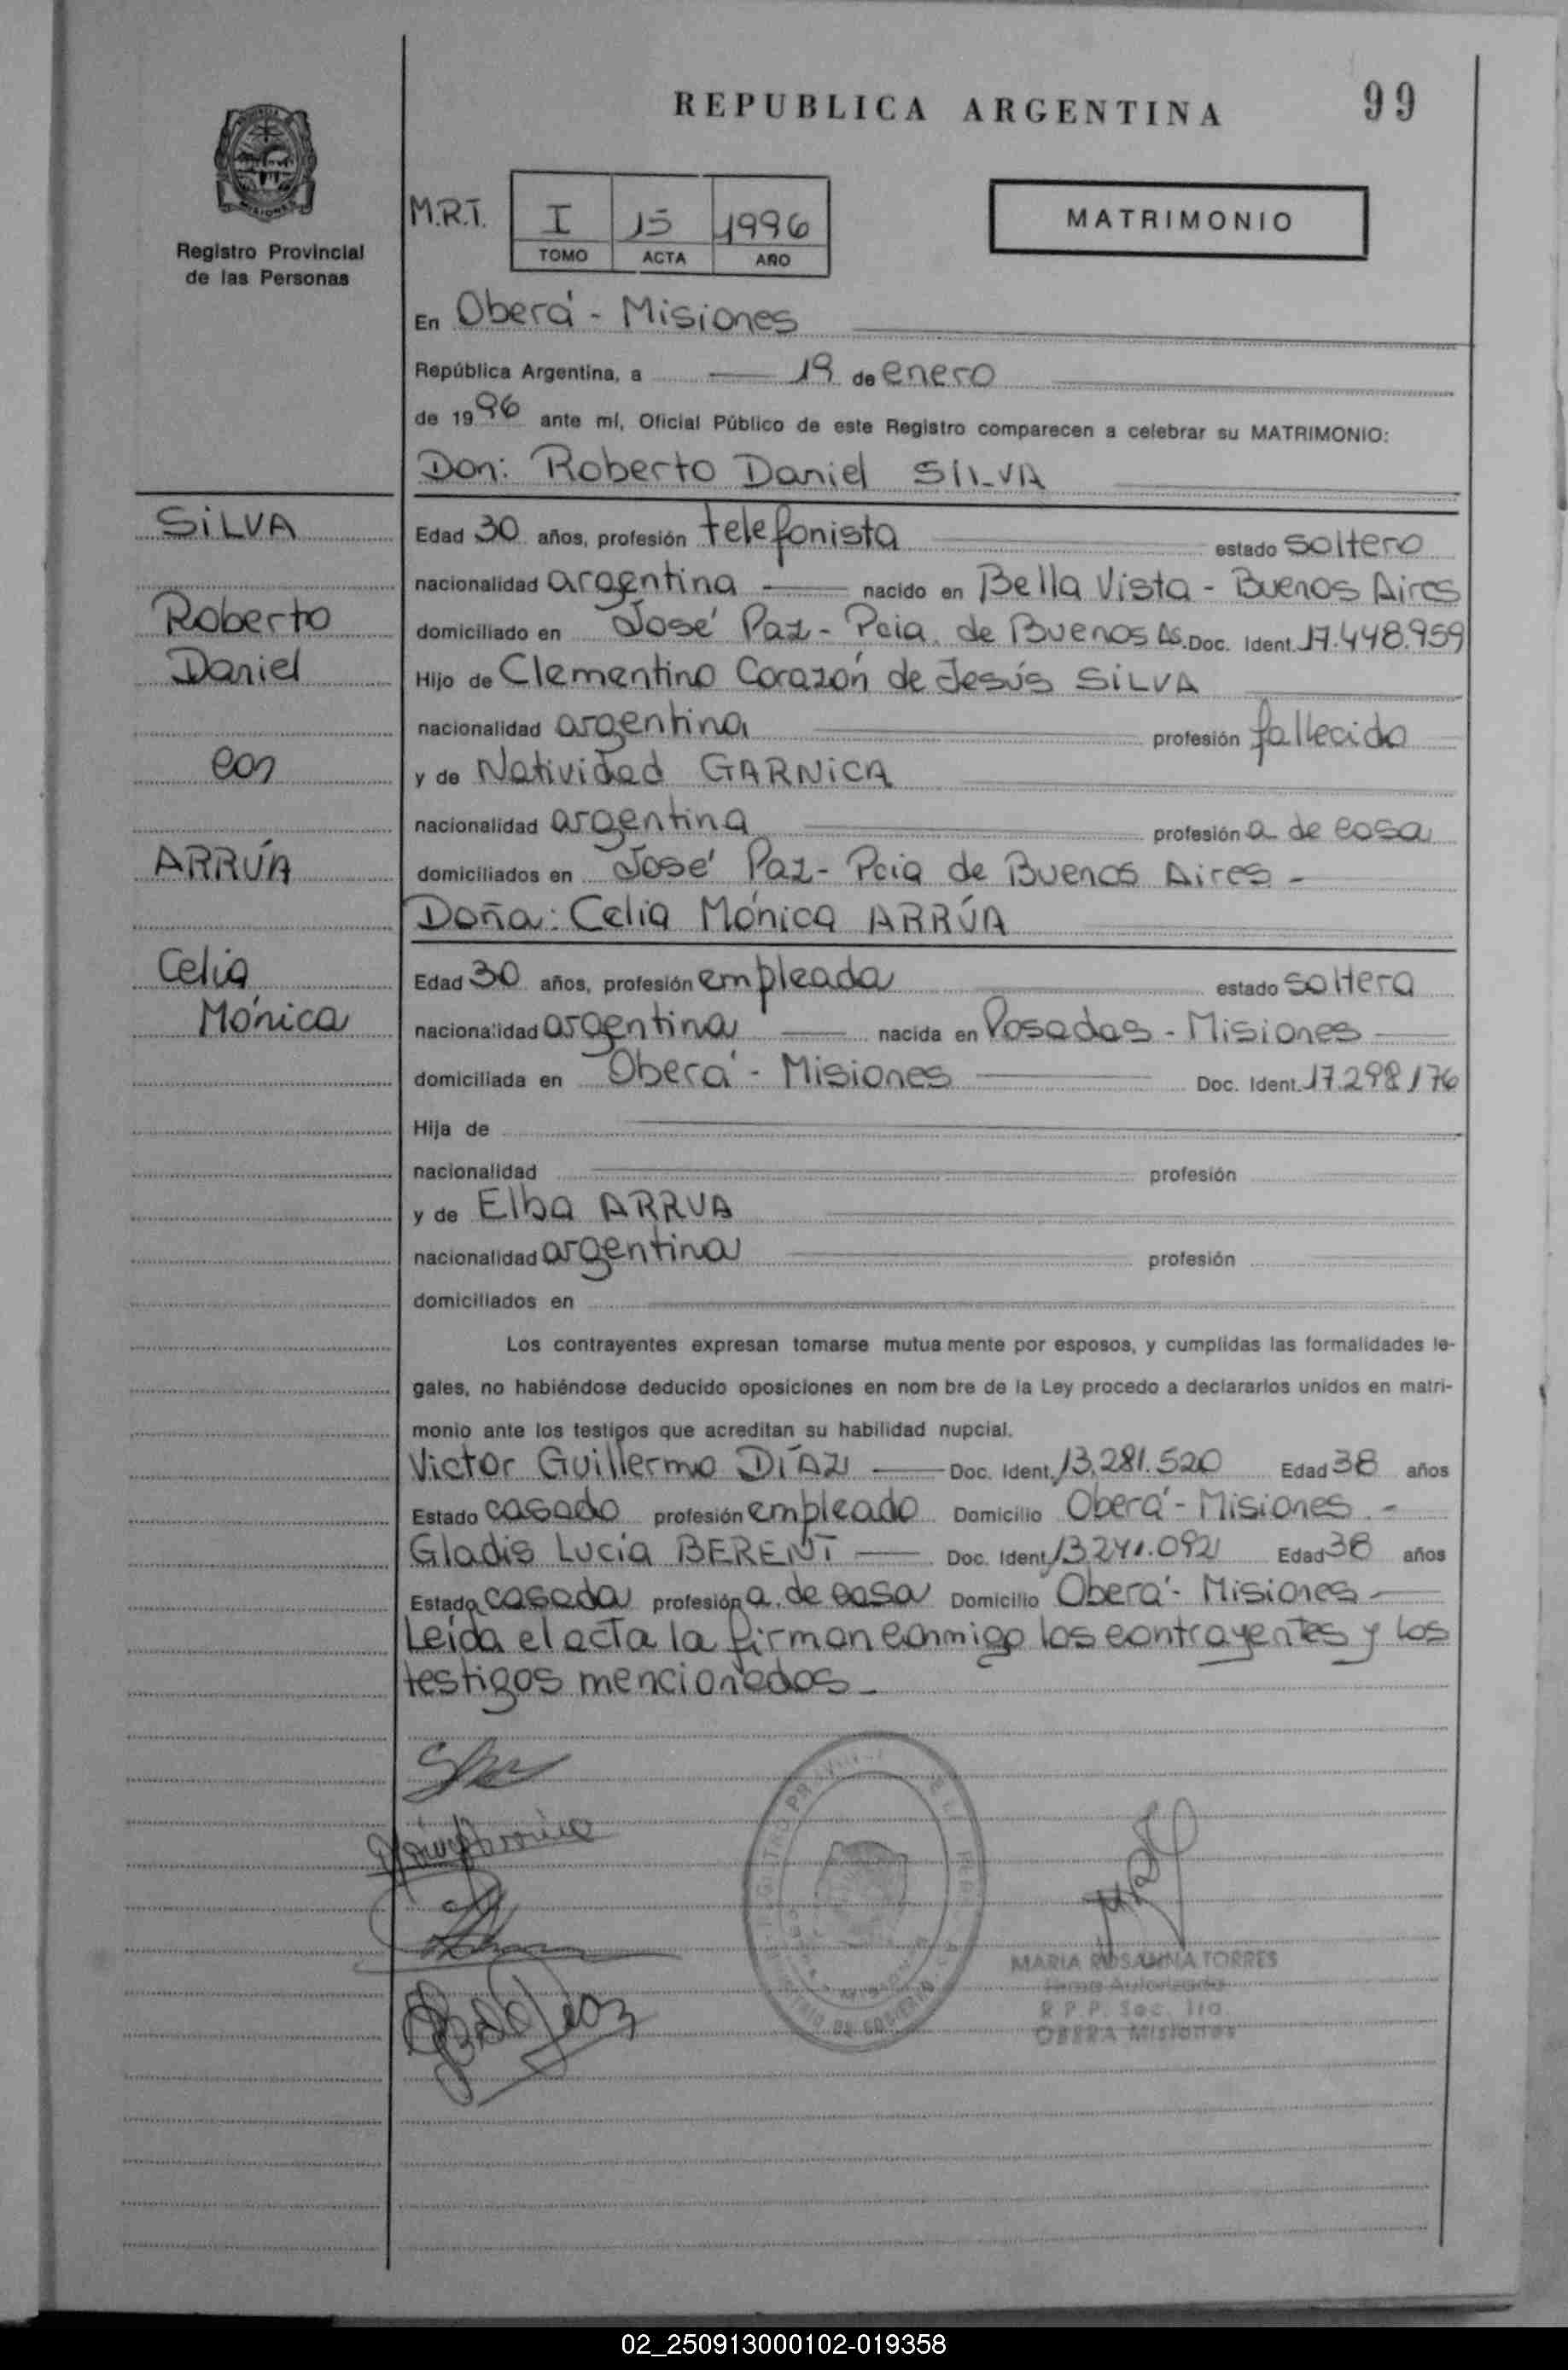 REPUBLICA ARGENTINA 99
MISIONES
Registro Provincial
de las Personas
M.R.T. I 15 1996
TOMO ACTA AÑO
MATRIMONIO
En Oberá - Misiones
República Argentina, a 19 de enero
de 1996 ante mí, Oficial Público de este Registro comparecen a celebrar su MATRIMONIO:
Don: Roberto Daniel SILVA
SILVA
Roberto
Daniel
con
ARRÚA
Celia
Mónica
Edad 30 años, profesión telefonista estado soltero
nacionalidad argentina nacido en Bella Vista - Buenos Aires
domiciliado en José Paz - Pcia. de Buenos As. Doc. Ident. 17.448.959
Hijo de Clementino Corazón de Jesús SILVA
nacionalidad argentina profesión fallecido
y de Natividad GARNICA
nacionalidad argentina profesión a de casa
domiciliados en José Paz - Pcia de Buenos Aires -
Doña: Celia Mónica ARRÚA
Edad 30 años, profesión empleada estado soltera
nacionalidad argentina nacida en Posadas - Misiones
domiciliada en Oberá - Misiones Doc. Ident. 17.298.176
Hija de
nacionalidad profesión
y de Elba ARRUA
nacionalidad argentina profesión
domiciliados en
Los contrayentes expresan tomarse mutua mente por esposos, y cumplidas las formalidades le-
gales, no habiéndose deducido oposiciones en nom bre de la Ley procedo a declararlos unidos en matri-
monio ante los testigos que acreditan su habilidad nupcial.
Victor Guillermo DÍAZ Doc. Ident. 13.281.520 Edad 38 años
Estado casado profesión empleado Domicilio Oberá - Misiones. -
Gladis Lucía BERENT Doc. Ident. 13.241.092 Edad 38 años
Estado casada profesión a. de casa Domicilio Oberá - Misiones -
Leída el acta la firman conmigo los contrayentes y los
testigos mencionados -
MARIA ROSANNA TORRES
Firma Autorizada
R.P.P. Sec. 1ra.
OBERA Misiones
02_250913000102-019358